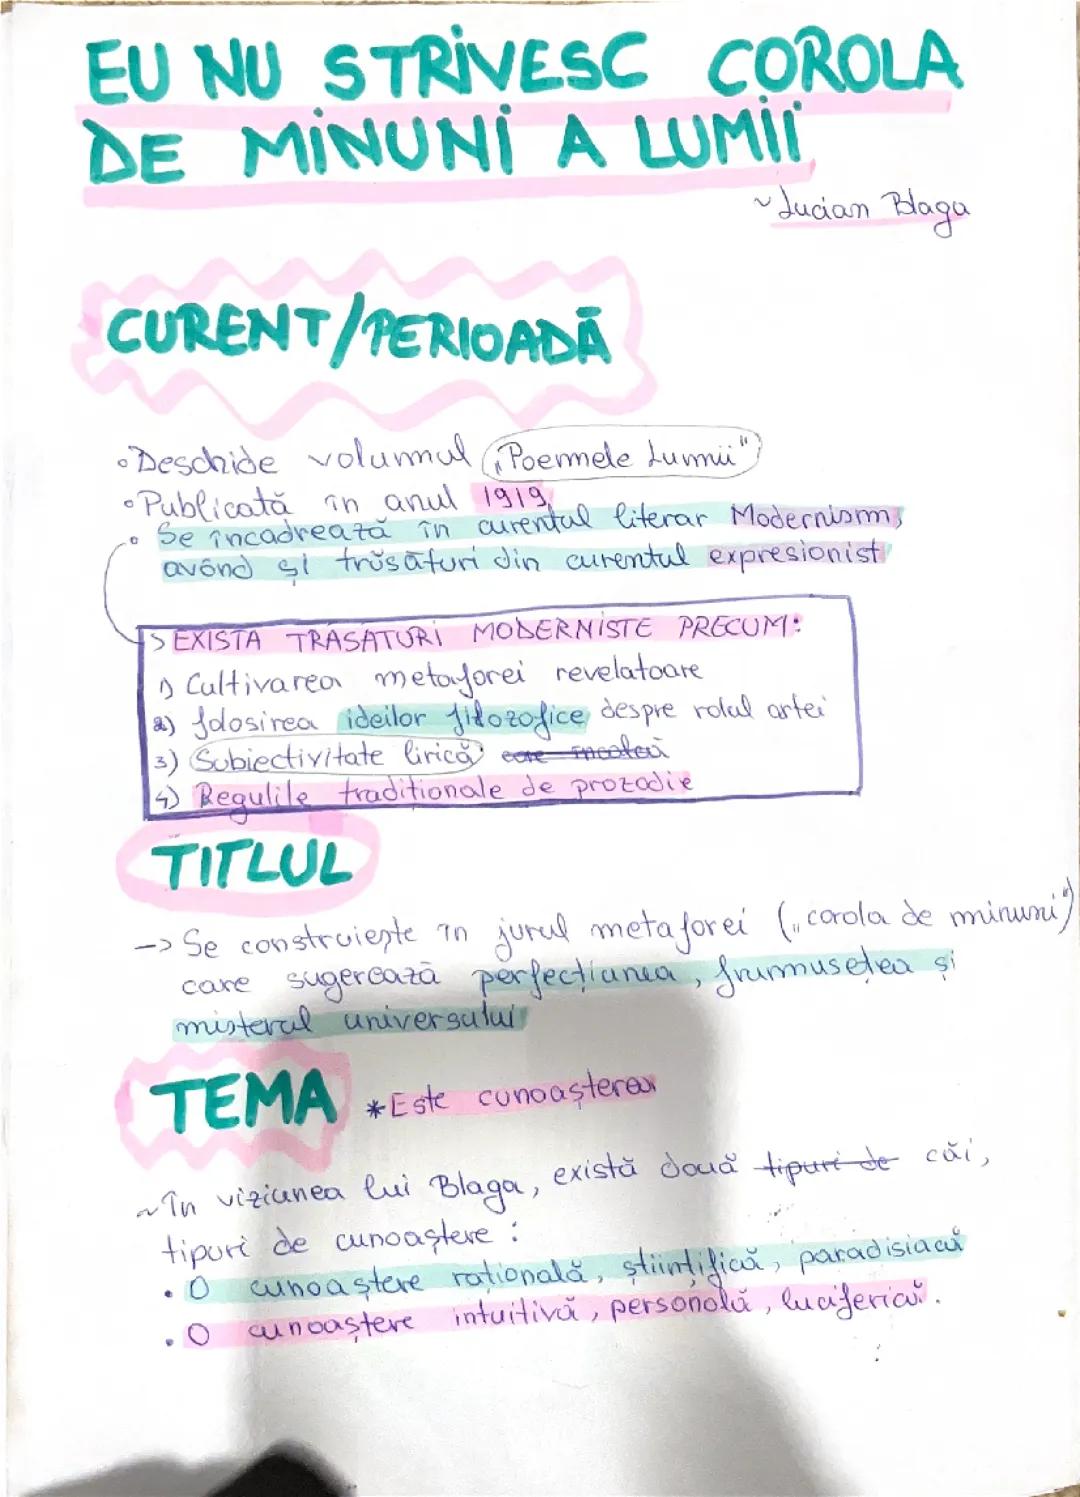 EU NU STRIVESC COROLA
DE MINUNI A LUMII
~ Lucian Blaga
CURENT/PERIOADĂ
• Deschide volumul „Poemele Lumii"
• Publicată în anul 1919,
• Se încadrează în curentul literar Modernism,
având și trăsături din curentul expresionist
> EXISTA TRĂSĂTURI MODERNISTE PRECUM:
1) Cultivarea metaforei revelatoare
2) folosirea ideilor filozofice despre rolul artei
3) Subiectivitate lirică
4) Regulile traditionale de prozodie
TITLUL
-> Se construiește în jurul metaforei („corola de minuni")
care sugerează perfecțiunea, frumusețea și
misterul universului
TEMA *Este cunoașterea
~ În viziunea lui Blaga, există două tipuri de căi,
tipuri de cunoaștere:
• O cunoaștere rațională, științifică, paradisiacă
• O cunoaștere intuitivă, personală, luciferică.